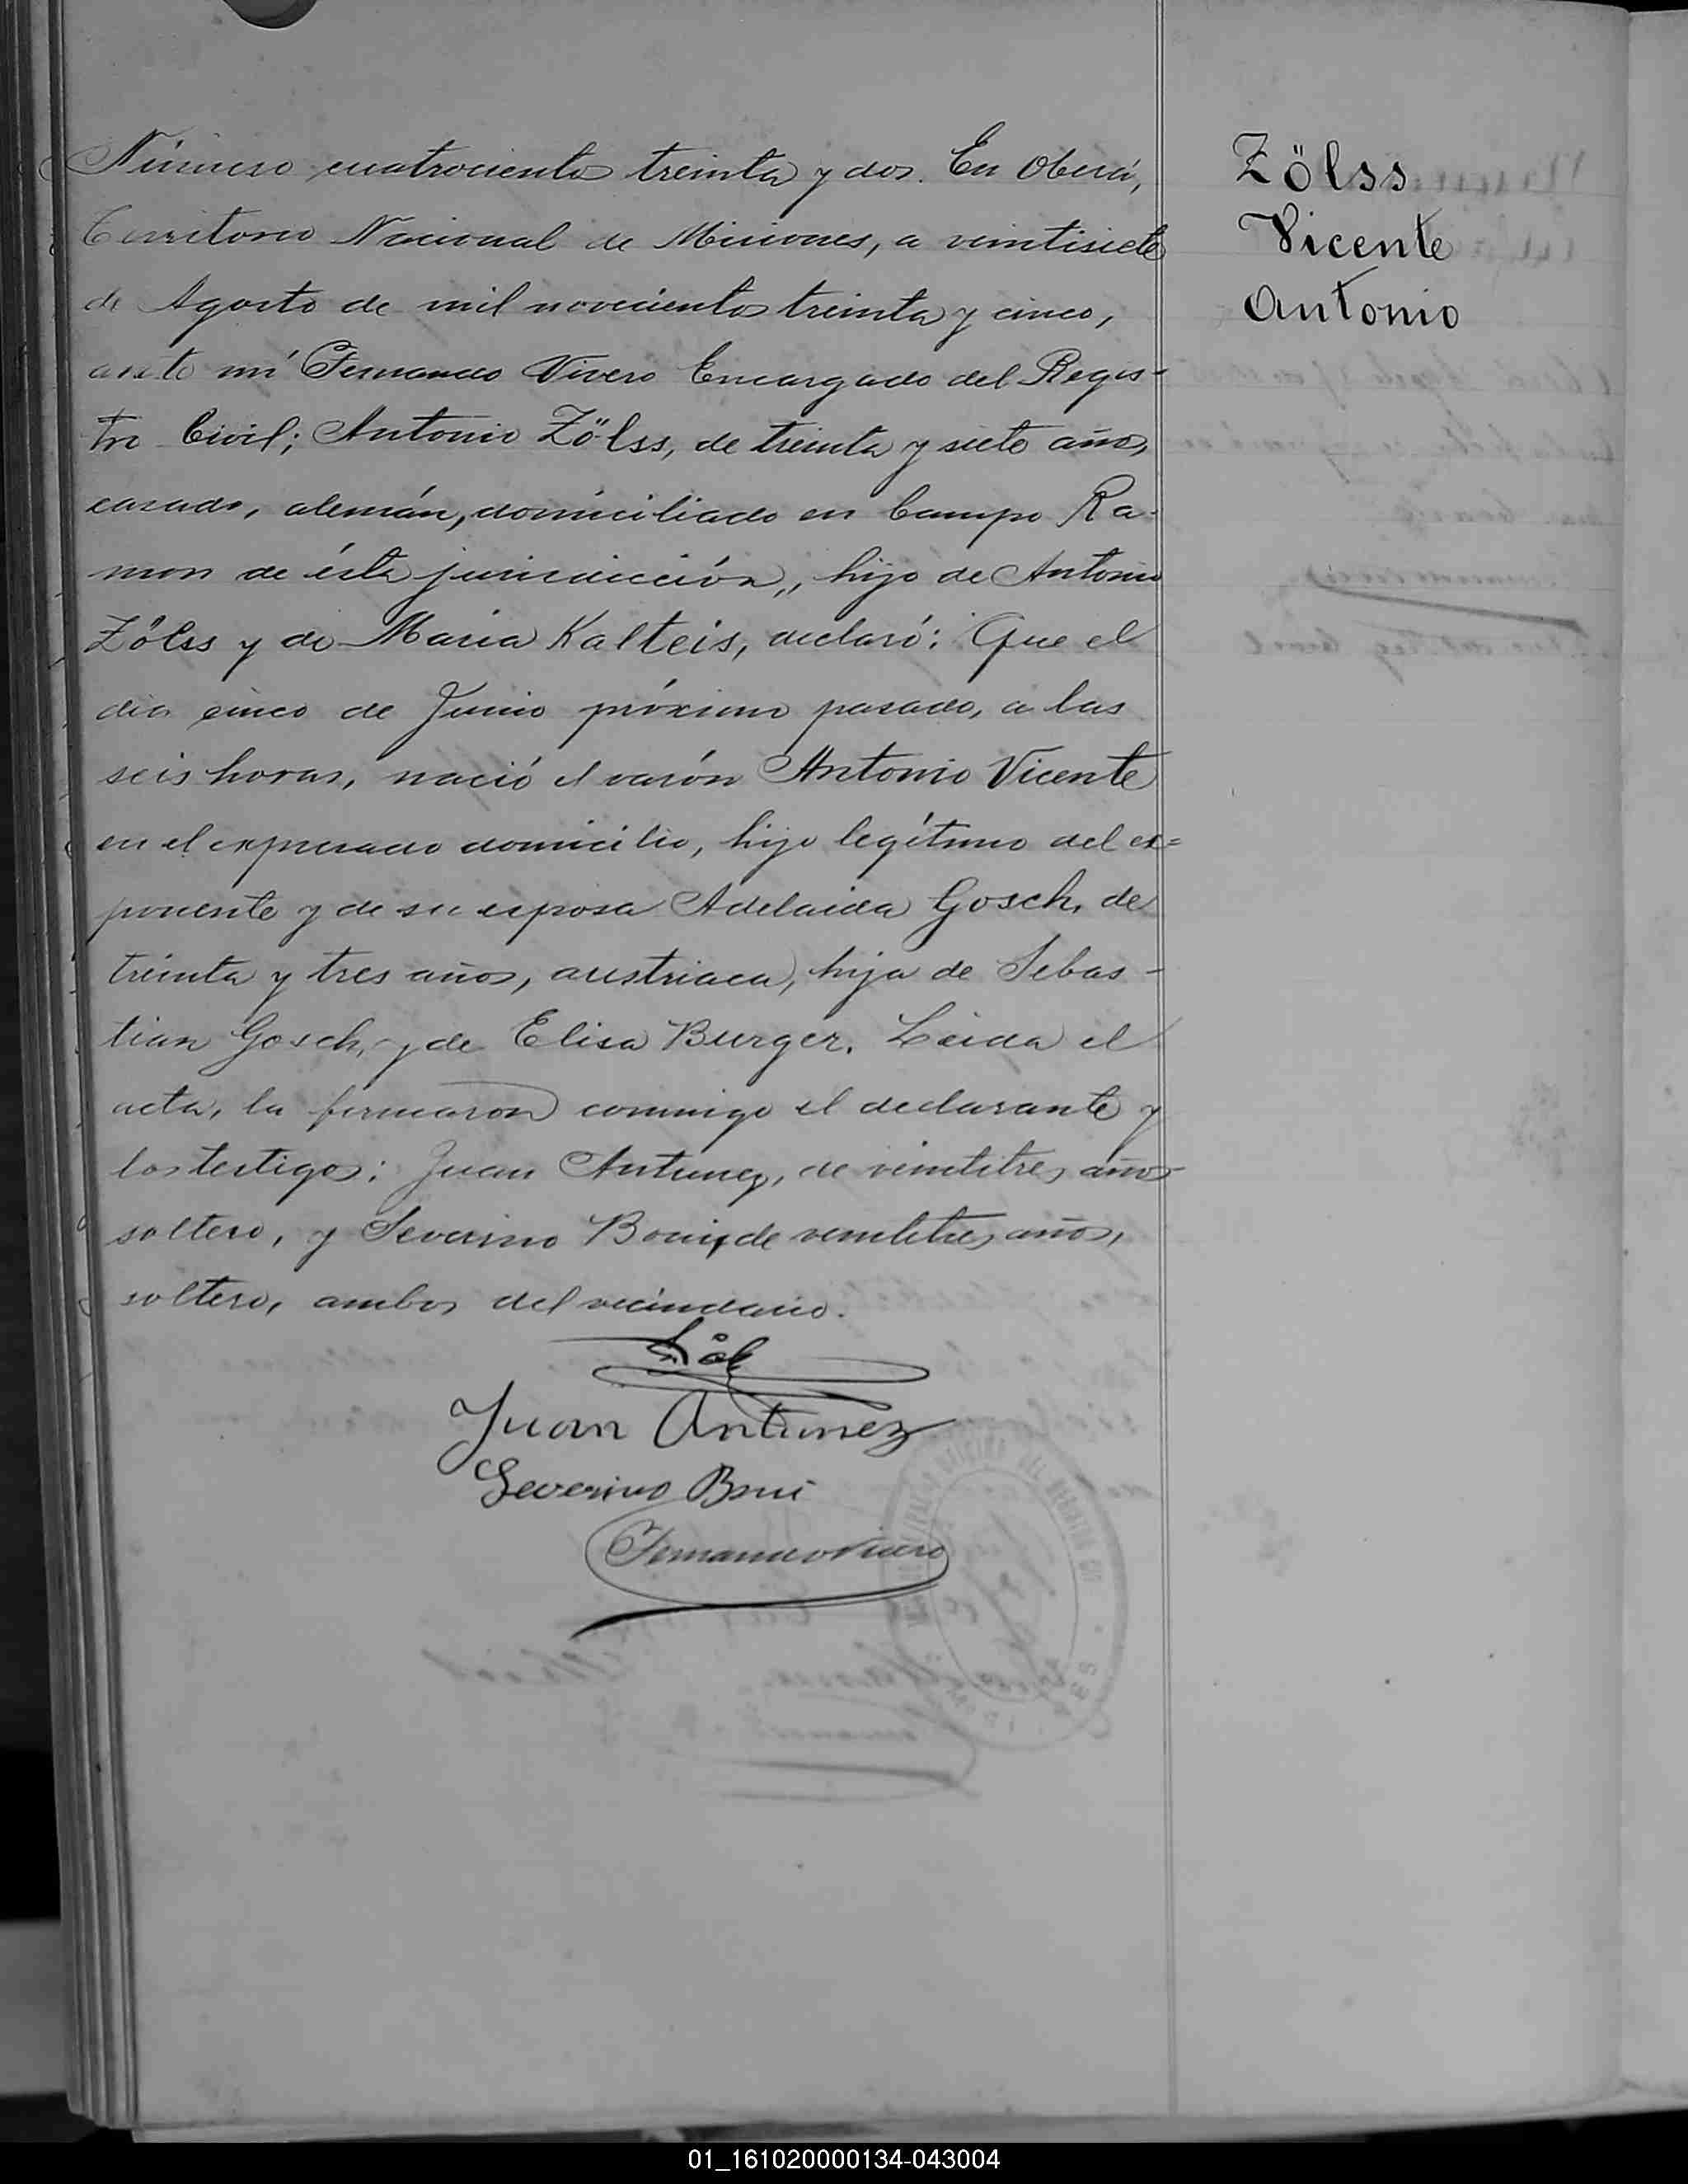 Número cuatrocientos treinta y dos. En Oberá,
Territorio Nacional de Misiones, a veintisiete
de Agosto de mil novecientos treinta y cinco,
ante mí Fernando Vivero Encargado del Regis-
tro Civil; Antonio Zölss, de treinta y siete años,
casado, alemán, domiciliado en Campo Ra-
mon de ésta jurisdicción, hijo de Antonio
Zölss y de Maria Kalteis, declaró: Que el
dia cinco de Junio próximo pasado, a las
seis horas, nació el varón Antonio Vicente
en el expresado domicilio, hijo legítimo del ex=
ponente y de su esposa Adelaida Gosch, de
treinta y tres años, austriaca, hija de Sebas-
tian Gosch, y de Elisa Burger. Leida el
acta, la firmaron conmigo el declarante y
los testigos: Juan Antunez, de veintitres años
soltero, y Severino Boni, de veintitres años,
soltero, ambos del vecindario.
Juan Antunez
Severino Boni
Fernando Vivero
Zölss
Vicente
Antonio
01_161020000134-043004